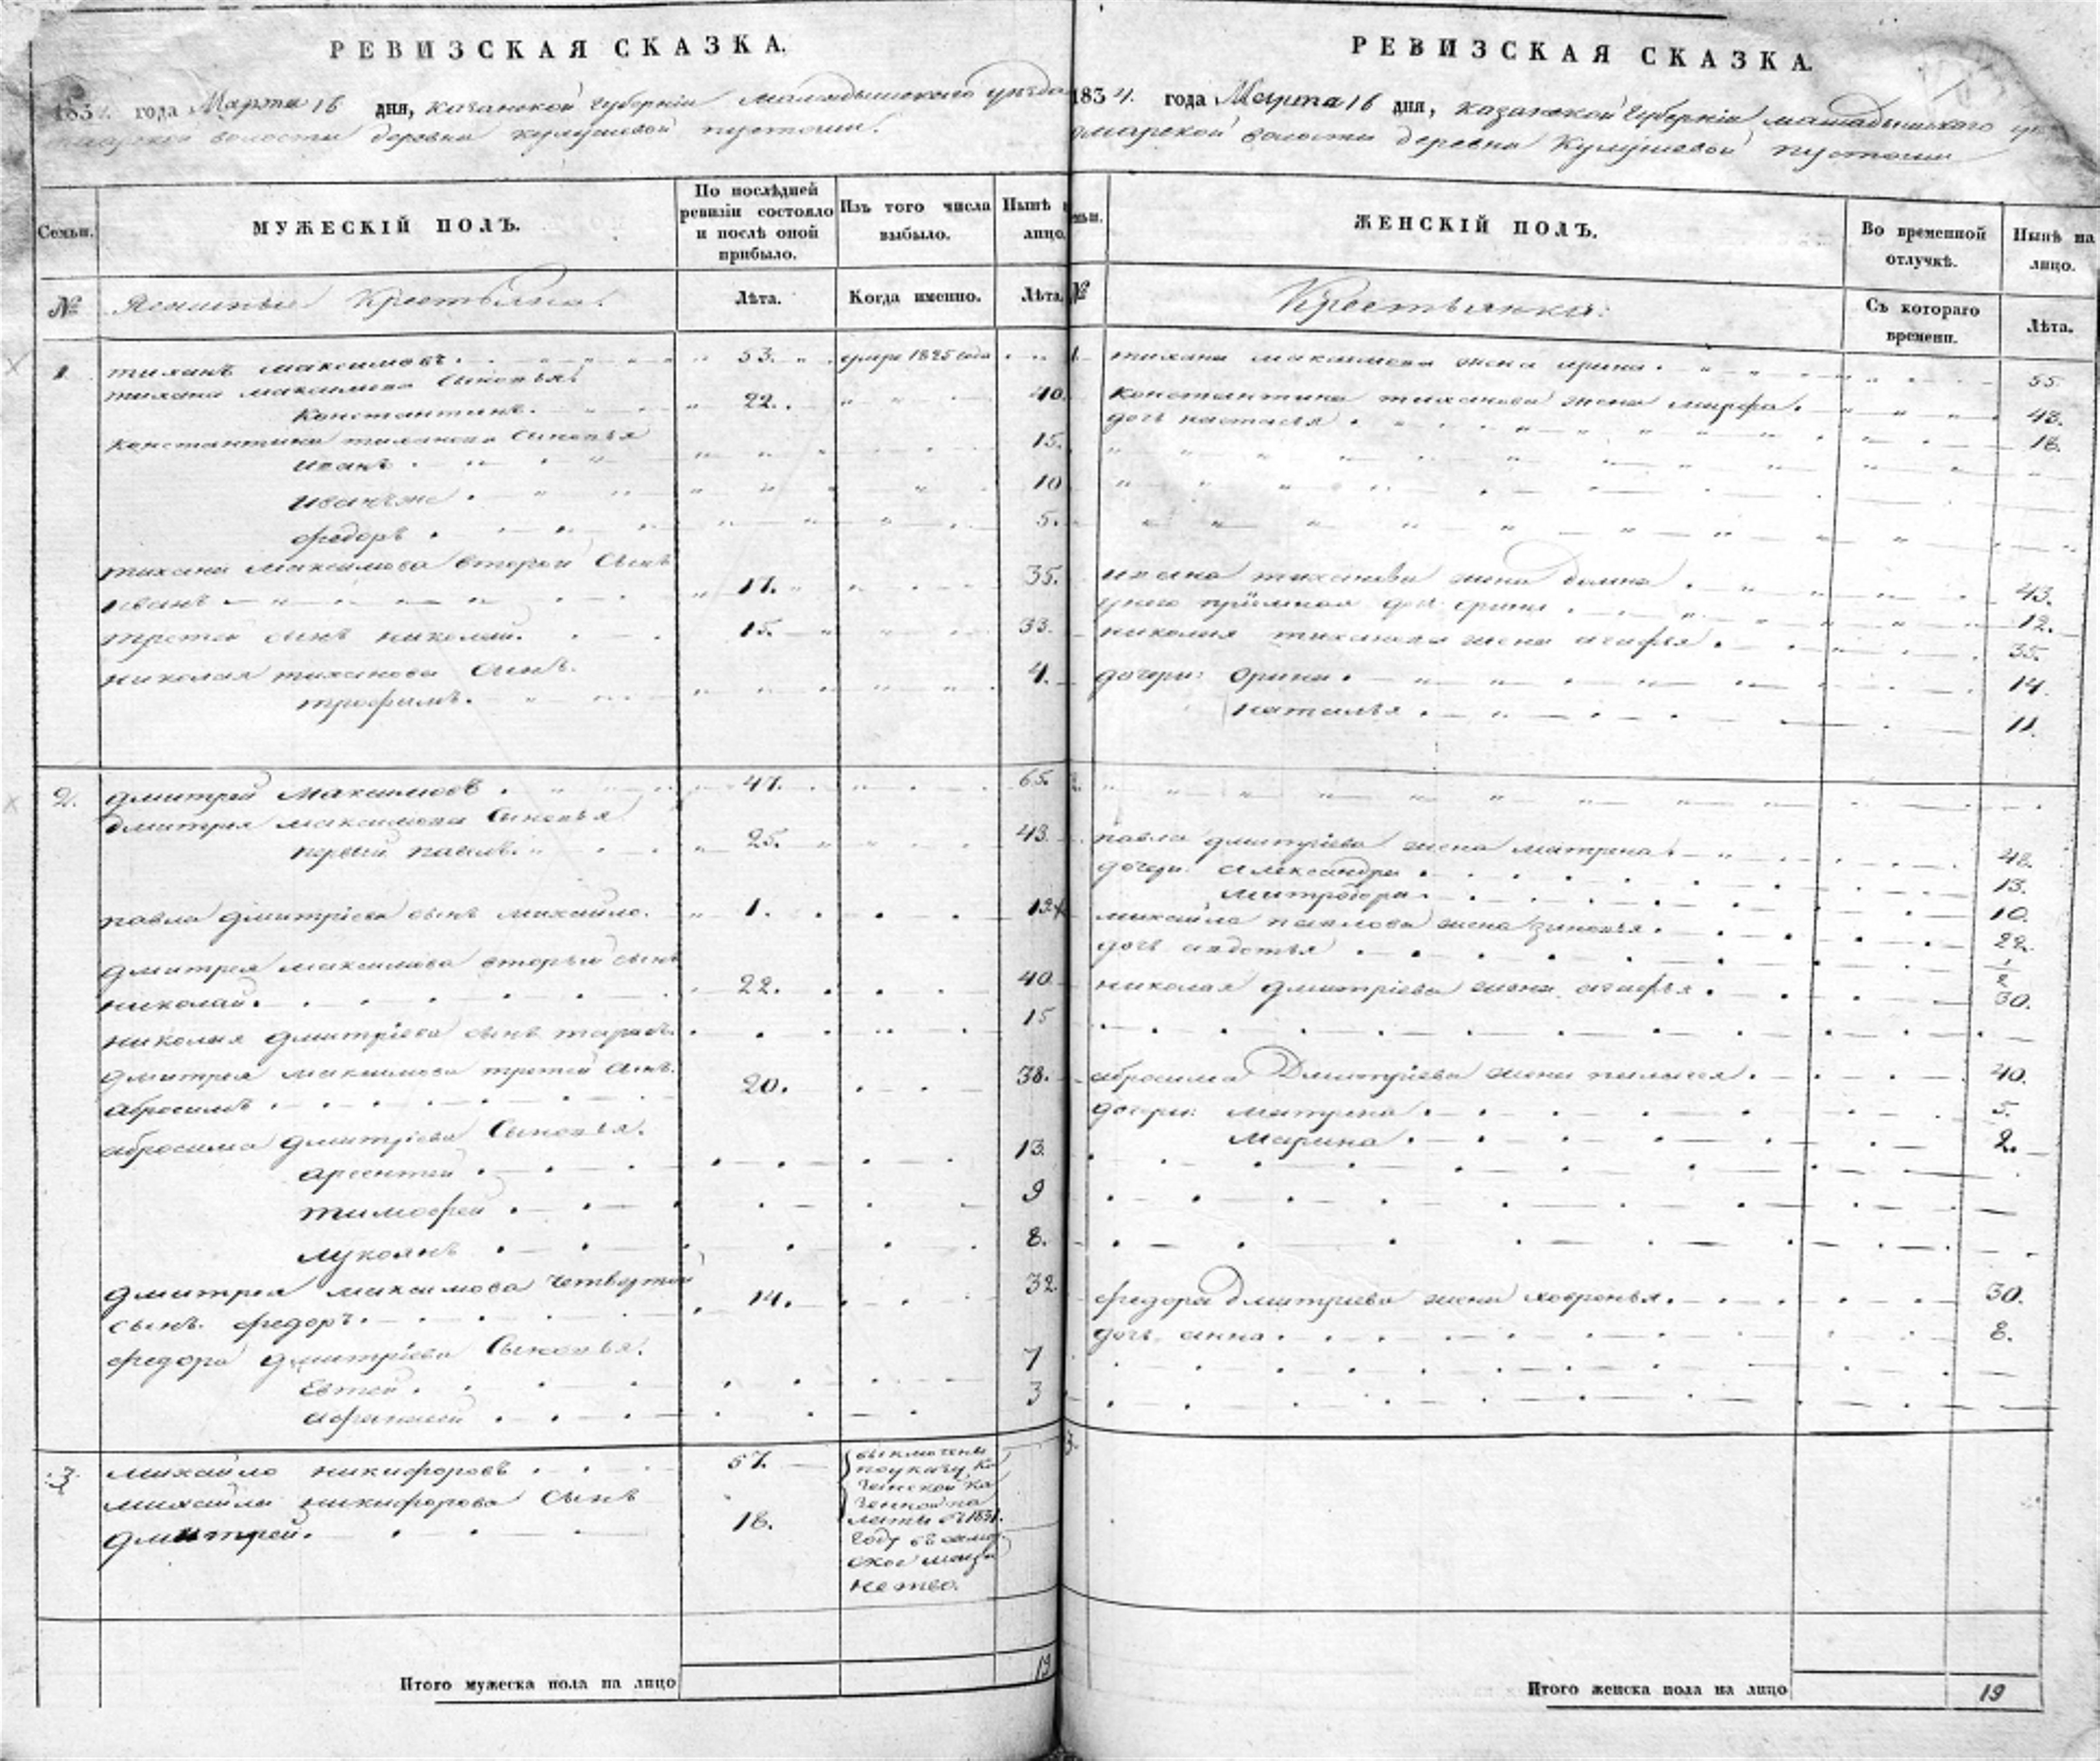 РЕВИЗСКАЯ СКАЗКА.
183 года Марта 16 дня, казанской губерніи мамадышского уезда
волости деревни кулушевой пустоши.
Семьи.
МУЖЕСКІЙ ПОЛЪ.
По послѣдней ревизіи состояло и послѣ оной прибыло.
Изъ того числа выбыло.
Нынѣ лицо.
№
Ясашные Крестьяна.
Лѣта.
Когда именно.
Лѣта.
1. тиханъ максимовъ. 53. умре 1825 года
тихана максимова сыновья
Константинъ. 22. 40.
константина тиханова сыновья
иванъ. 15.
иванъ же. 10
федоръ. 5.
тихана максимова второй сынъ
иванъ 17. 35.
третей сынъ николай. 15. 33.
николая тиханова сынъ.
трофимъ. 4.
2. дмитрей максимовъ. 47. 65.
дмитрея максимова сыновья
первый павилъ. 25. 43.
павла дмитріева сынъ михайло. 1.
дмитрея максимова вторый сынъ
николай. 22. 40.
николая дмитріева сынъ тарасъ. 15
дмитрея максимова третей сынъ.
абросимъ. 20. 38.
абросима дмитріева сыновья.
арсентей. 13.
тимофей. 9
лукоянъ. 8.
дмитрея максимова четвертой
сынъ федоръ. 14. 32.
федора дмитріева сыновья.
Евтей. 7
афанасей. 3
3. михайло никифоровъ. 57.
михайлы никифорова сынъ
дмитрей. 18.
выключены
по указу Ка
занской ка
зенной па
латы въ 1831.
году въ
ское меща
нство.
Итого мужеска пола на лицо 19
РЕВИЗСКАЯ СКАЗКА.
1834. года Марта 16 дня, казанской губерніи мамадышского
омарской волости деревни Кулушевой пустоши
ЖЕНСКІЙ ПОЛЪ.
Во временной отлучкѣ.
Нынѣ на лицо.
№
Крестьянки:
Съ котораго времени.
Лѣта.
1. тихана максимова жена ирина. 55.
константина тиханова жена марфа. 43.
дочь настасья. 18.
ивана тиханова жена домна. 43.
у него приемная доч орина. 12.
николая тиханова жена агафья. 35.
дочери: орина. 14.
наталья. 11.
2.
павла дмитріева жена матрена. 48.
дочери: александра. 13.
митродора. 10.
михайла павлова жена зиновья. 22.
дочь авдотья. 1/2
николая дмитріева жена агафья. 30.
абросима Дмитріева жена пелагея. 40.
дочери: матрена. 5.
марина. 2.
федора Дмитриева жена ховронья. 30.
дочь анна. 8.
3.
Итого женска пола на лицо 19